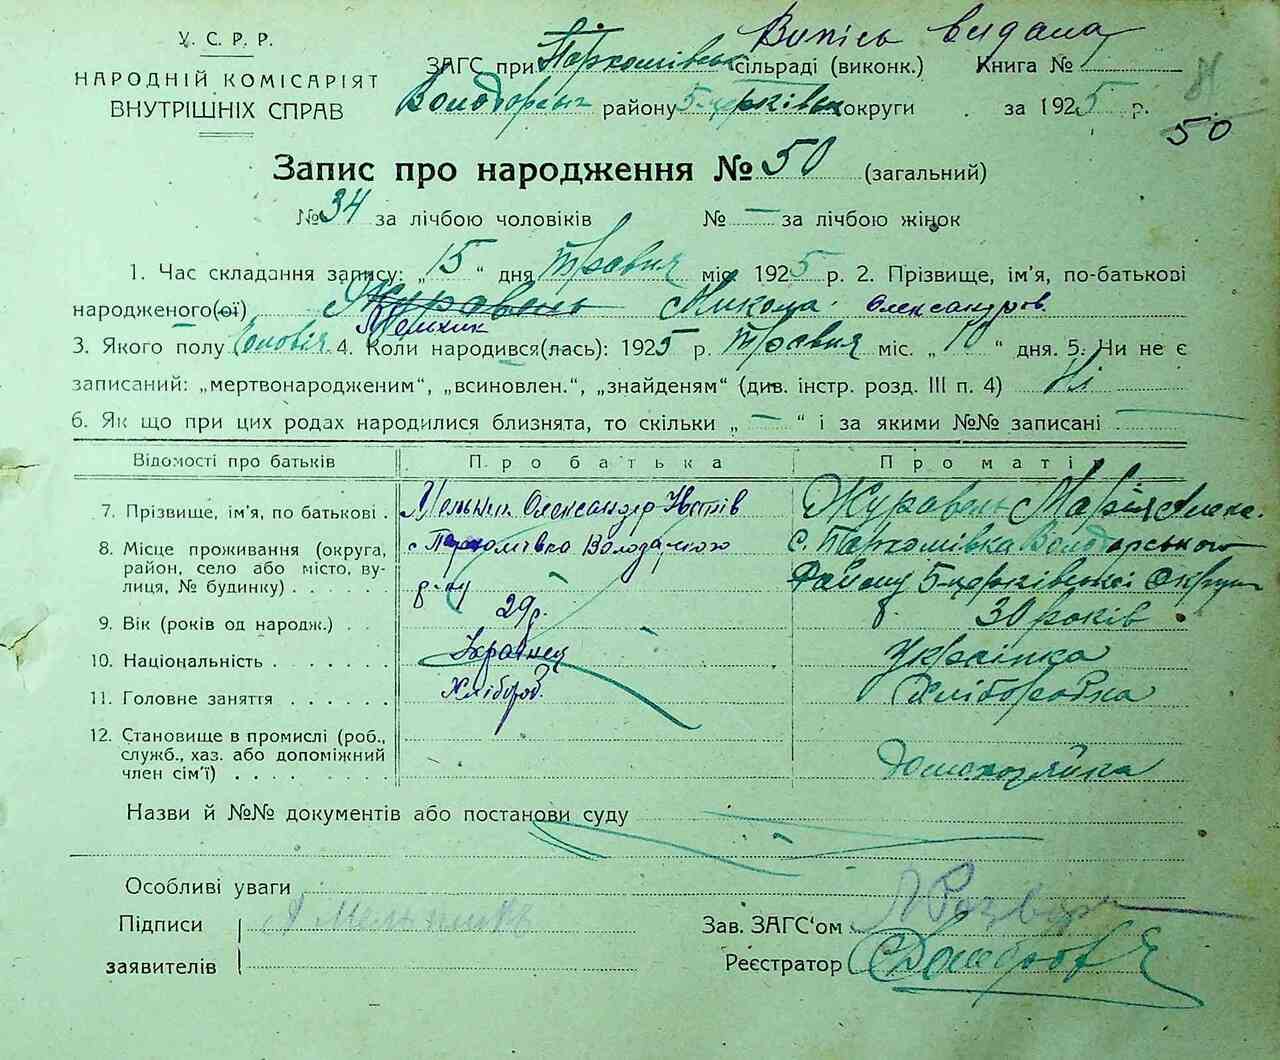 У. С. Р. Р.
НАРОДНІЙ КОМІСАРІЯТ
ВНУТРІШНІХ СПРАВ
Випись видана
ЗАГС при Пархомівськ сільраді (виконк.) Книга №
Володарськ району Б-Церківськ округи за 1925 р.
81
50
Запис про народження № 50 (загальний)
№ 34 за лічбою чоловіків № — за лічбою жінок
1. Час складання запису: „15“ дня травня міс. 1925 р. 2. Прізвище, ім’я, по-батькові
народженого(ої) Журавель Микола Олександров.
Мельник
3. Якого полу Чоловіч. 4. Коли народився(лась): 1925 р. травня міс. „10“ дня. 5. Чи не є
записаний: „мертвонародженим“, „всиновлен.“, „знайденям“ (див. інстр. розд. III п. 4) Ні
6. Як що при цих родах народилися близнята, то скільки „ — “ і за якими №№ записані —
Відомості про батьків Про батька Про матір
7. Прізвище, ім’я, по батькові . Мельник Олександр Журавель Марія
8. Місце проживання (округа, район, село або місто, вулиця, № будинку) с. Пархомівка с. Пархомівка Володарського
району Б-Церківської Округи
9. Вік (років од народж.) . . 29 р. 30 років
10. Національність . . . . . . . Українец Українка
11. Головне заняття . . . . . . Хлібороб. Хліборобка
12. Становище в промислі (роб., служб., хаз. або допоміжний член сім’ї) . . . . . . . . Домохозяйка
Назви й №№ документів або постанови суду
Особливі уваги
Підписи А Мельник Зав. ЗАГС‘ом
заявителів Реєстратор